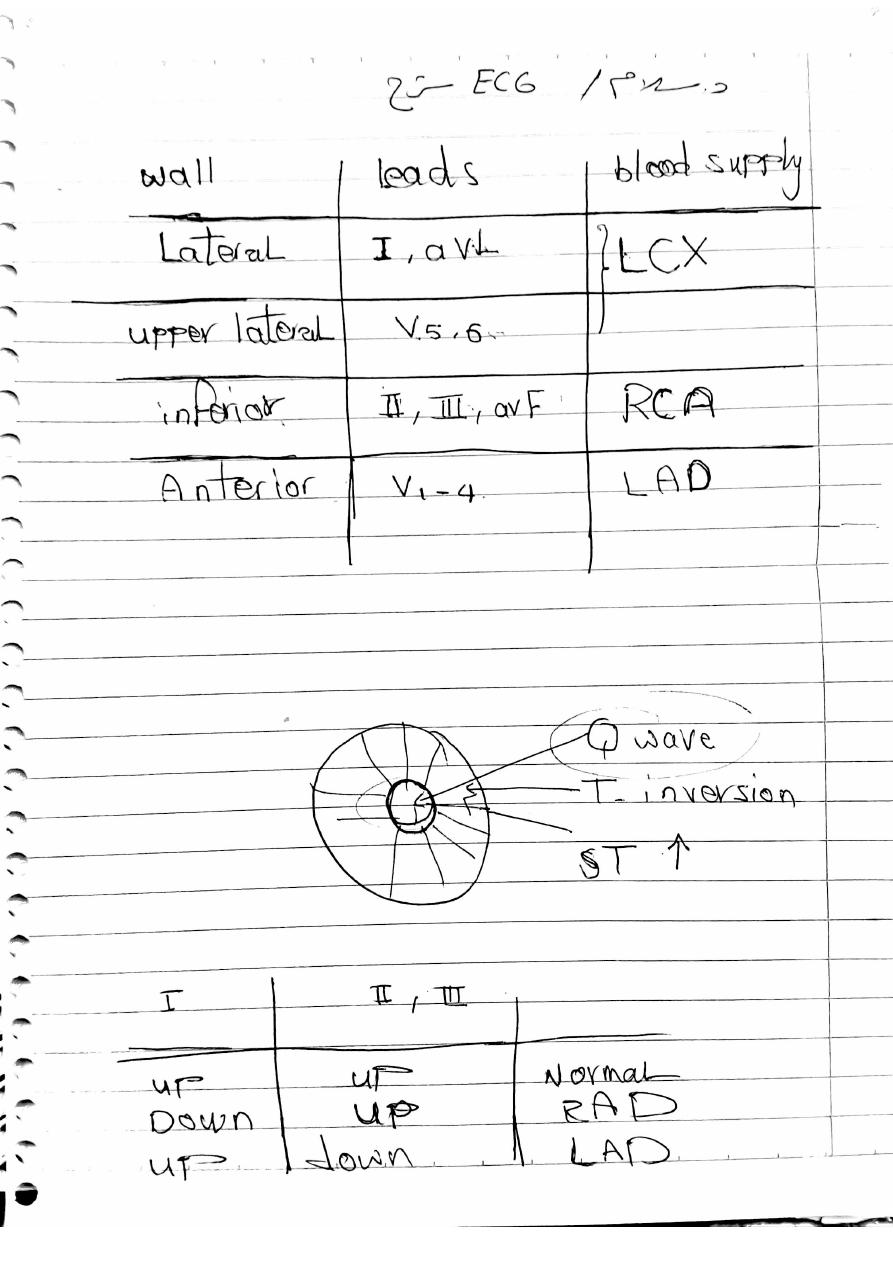 شرح ECG / د.
wall leads blood supply
Lateral I, aVL LCX
upper lateral V5,6
inferior II, III, avF RCA
Anterior V1-4 LAD
Q wave
T- inversion
ST ↑
I II, III
UP UP Normal
DOWN UP RAD
UP down LAD